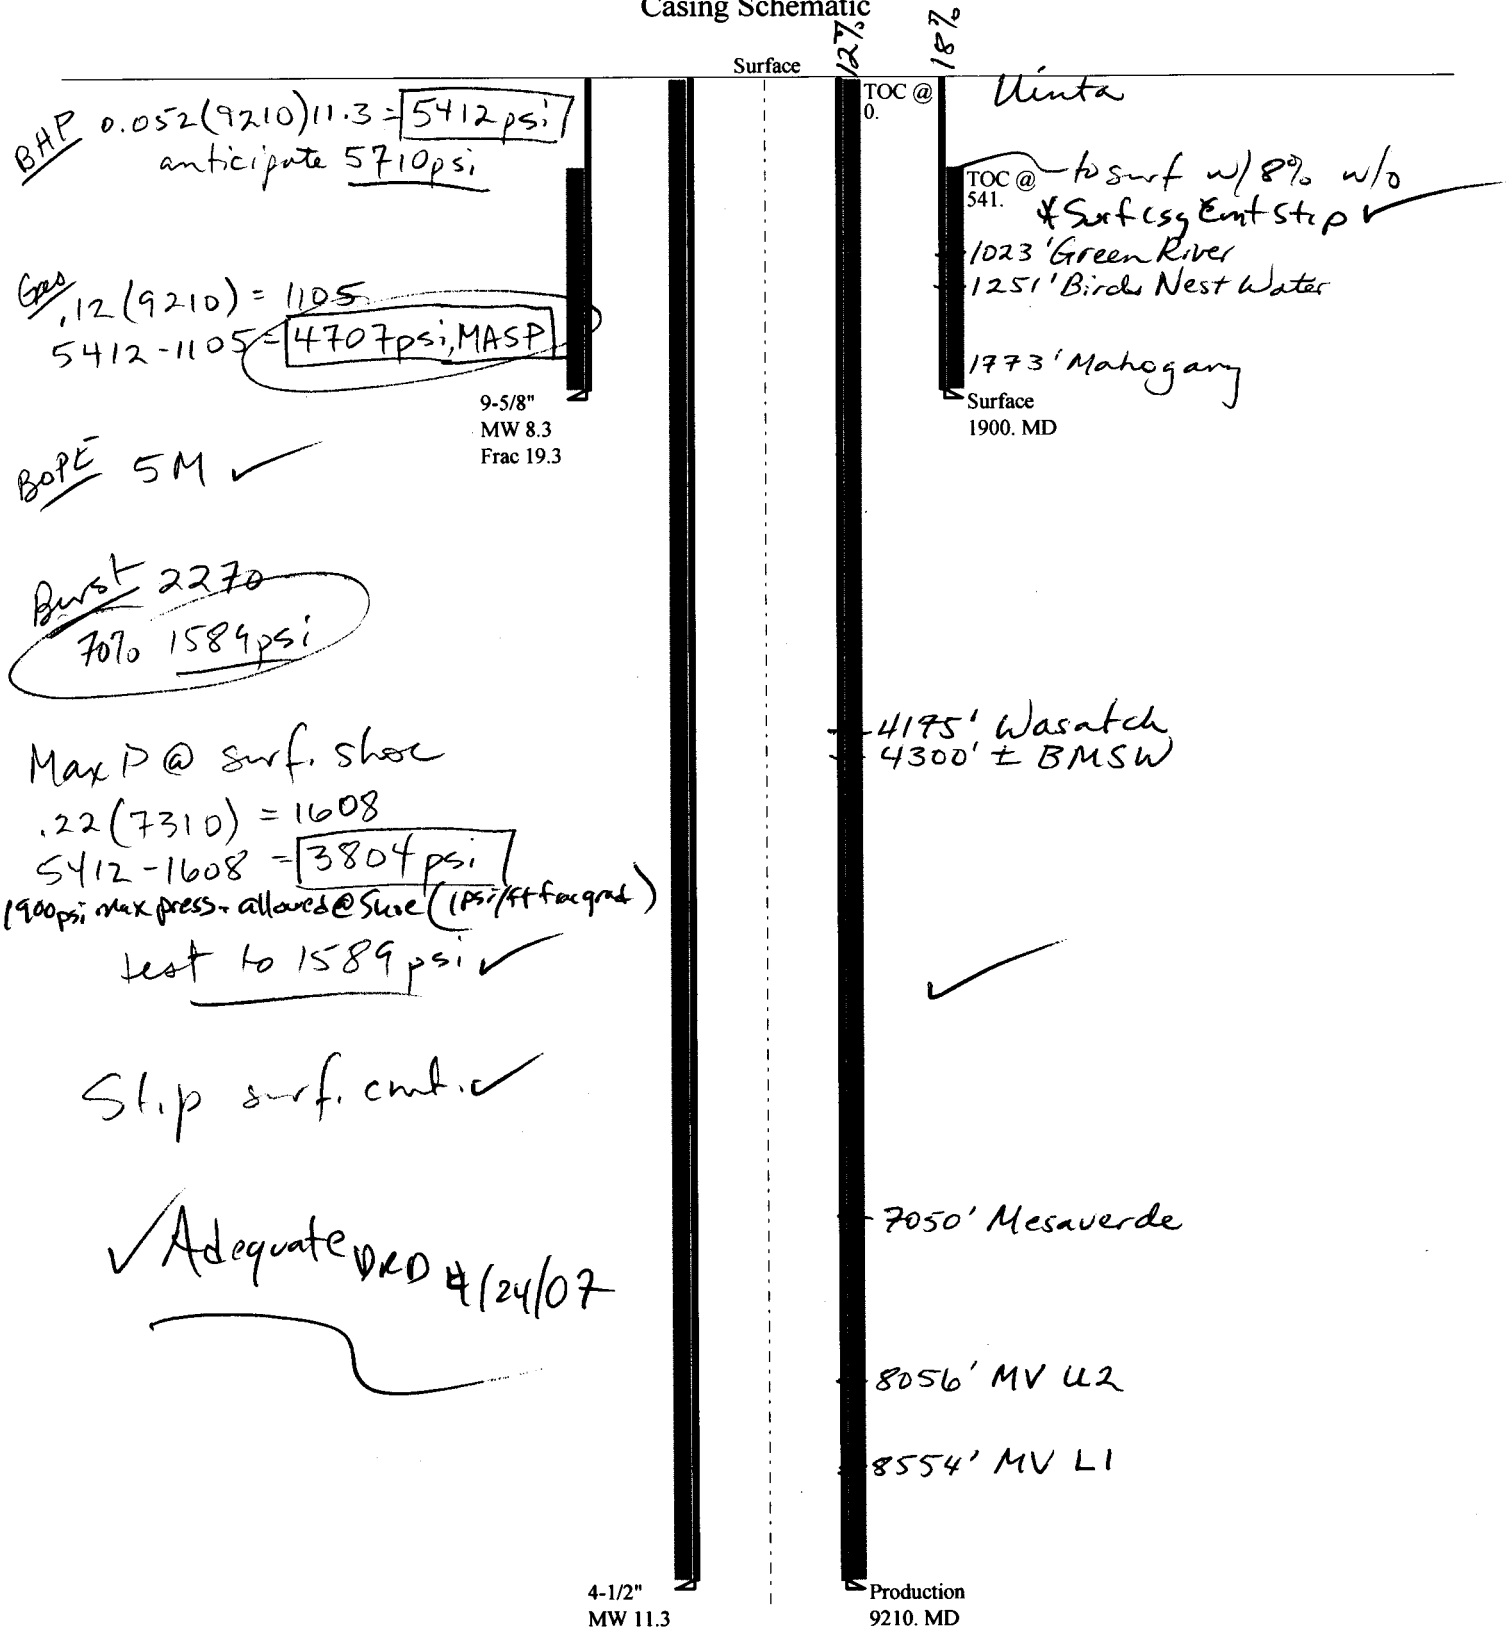 Casing Schematic
12%
18%
Surface
TOC @
0.
Uinta
BHP 0.052(9210)11.3 = 5412psi
anticipate 5710psi
TOC @
541.
to surf w/ 8% w/o
*Surf csg Cmt Stip ✓
1023' Green River
1251' Birds Nest Water
1773' Mahogany
Surface
1900. MD
Gas
.12(9210) = 1105
5412-1105 = 4707psi, MASP
9-5/8"
MW 8.3
Frac 19.3
BOPE 5M ✓
Burst 2270
70% 1589psi
4195' Wasatch
4300' ± BMSW
Max P @ surf. shoe
.22(7310) = 1608
5412-1608 = 3804psi
1900psi max press. allowed @ Shoe (1psi/ft frac grad)
test to 1589psi ✓
✓
Stip surf. cmt. ✓
7050' Mesaverde
✓ Adequate DRD 4/24/07
8056' MV U2
8554' MV L1
4-1/2"
MW 11.3
Production
9210. MD